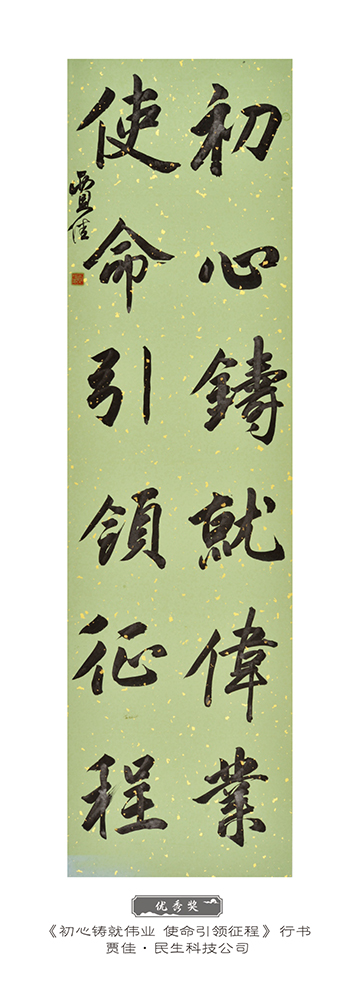 初心鑄就偉業
使命引領征程
賈佳
优秀奖
《初心铸就伟业 使命引领征程》行书
贾佳·民生科技公司